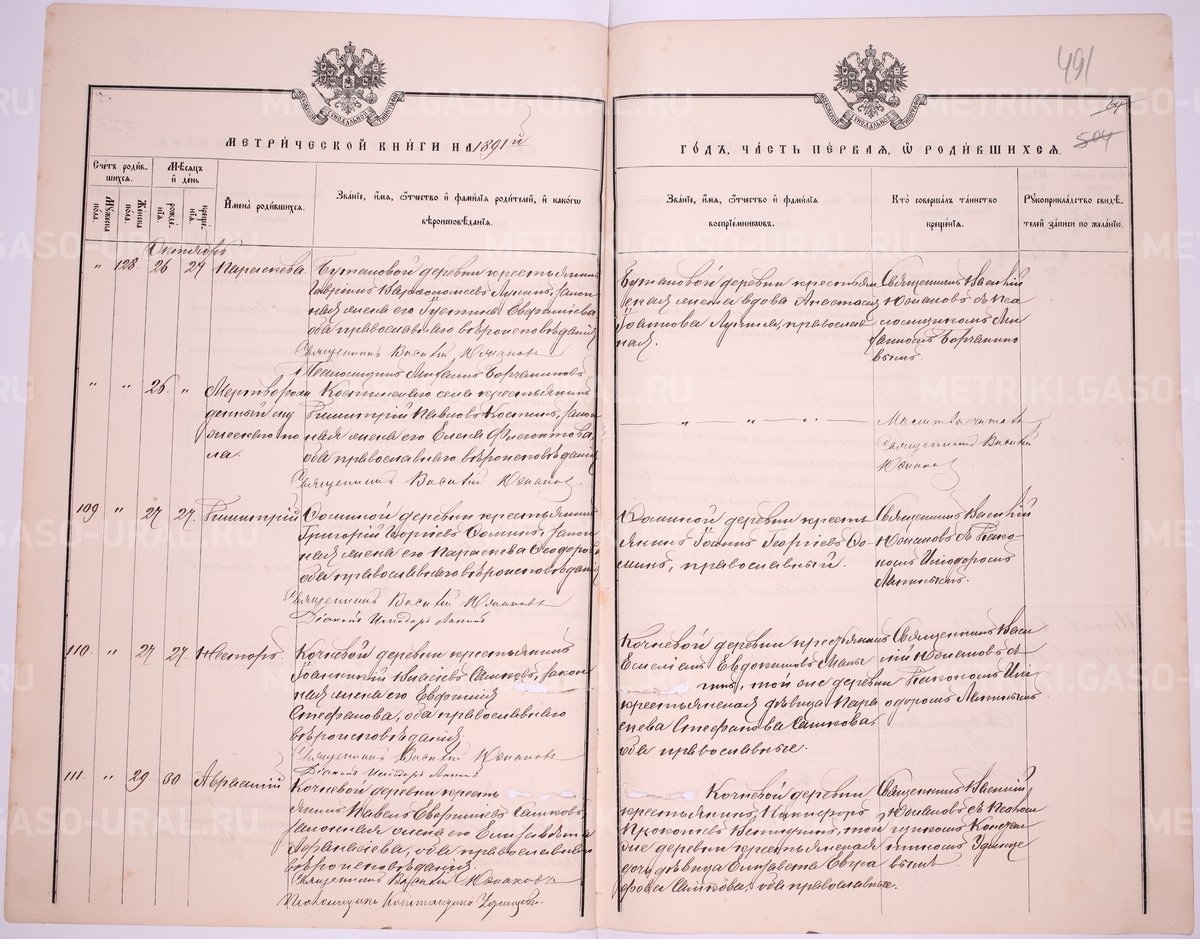 491
64
504
МЕТРИЧЕСКОЙ КНИГИ НА 1891й
ГОДЪ, ЧАСТЬ ПЕРВАЯ, Ѡ РОДИВШИХСЯ.
Счетъ родив-
шихся.
Мужеска
пола.
Женска
пола.
Мѣсяцъ
и день
рожде-
нія.
креще-
нія.
Имена родившихся.
Званіе, имя, отчество и фамилія родителей, и какого
вѣроисповѣданія.
Званіе, имя, отчество и фамилія
воспріемниковъ.
Кто совершалъ таинство
крещенія.
Рукоприкладство свидѣ-
телей записи по желанію.
Октябрь
" 128. 26 27 Параскева
деревни крестьянинъ
Гаврiилъ Варѳоломеевъ Лукинъ, закон
ная жена его Iустина
оба православнаго вѣроисповѣданiя
Священникъ Василiй Южаковъ
Псаломщикъ Михаилъ
деревни крестьян
ская жена вдова Анастасiя
Iоаннова Лукина, православ
ная.
Священникъ Василiй
Южаковъ съ Пса
ломщикомъ Ми
хаиломъ
" " 26. " Мертворож
денный му
жескаго по
ла.
села крестьянинъ
Димитрiй Павловъ Костинъ, закон
ная жена его Елена
оба православнаго вѣроисповѣданiя
Священникъ Василiй Южаковъ.
" " "
Молитвы читалъ
Священникъ Василiй
Южаковъ
109 " 27 27. Димитрiй
Ѳоминой деревни крестьянинъ
Григорiй Ѳоминъ, закон
ная жена его Параскева Ѳеодорова
оба православнаго вѣроисповѣданiя
Священникъ Василiй Южаковъ
Дiаконъ Исидоръ Ляпинъ
Ѳоминой деревни кресть
янинъ Iоаннъ Георгiевъ Ѳо-
минъ, православный.
Священникъ Василiй
Южаковъ съ Дiако-
номъ Исидоромъ
Ляпинымъ.
110. " 27 27. Несторъ
Кочневой деревни крестьянинъ
Iоанникiй Власiевъ Сашковъ, закон
ная жена его Евфимiя
Стефанова, оба православнаго
вѣроисповѣданiя.
Священникъ Василiй Южаковъ
Дiаконъ Исидоръ Ляпинъ
Кочневой деревни крестьянинъ
Емелiанъ Евдокимовъ
той же деревни
крестьянская дѣвица Пара
скева Стефанова Сашкова,
оба православные.
Священникъ Васи
лiй Южаковъ съ
Дiакономъ Иси
доромъ Ляпинымъ
111. " 29 30 Авраамiй
Кочневой деревни кресть
янинъ Павелъ Сашковъ,
законная жена его Елизавета
Аѳанасiева, оба православнаго
вѣроисповѣданiя
Священникъ Василiй Южаковъ
Псаломщикъ Константинъ Удинцевъ.
Кочневой деревни
крестьянинъ Никифоръ
Прокопiевъ той
же деревни крестьянская
дочь дѣвица Елизавета
Сашкова, оба православные.
Священникъ Василiй
Южаковъ съ Псалом
щикомъ Констан
тиномъ Удинце
вымъ
METRIKI.GASO-URAL.RU